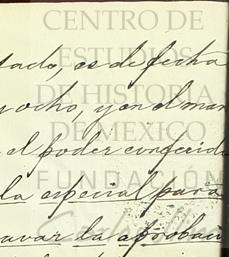 CENTRO DE
ESTUDIOS
DE HISTORIA
DE MEXICO
FUNDACIÓN
tado, es de fecha
y ocho, y en el man
el poder conferid
la especial para
la aprobac